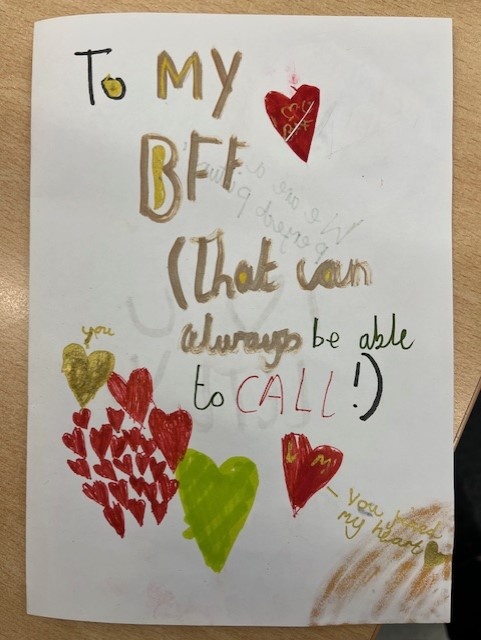 To MY
BFF
(that can
always be able
to CALL!)
you
I
BFF
L M
- You joined
my heart
We are a
perfect